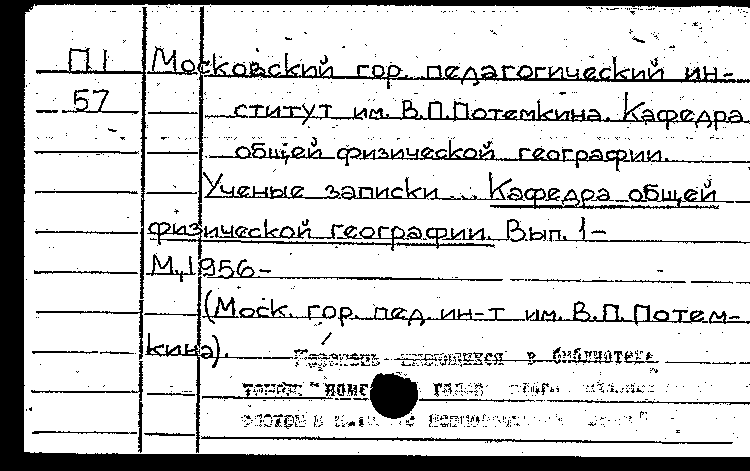 П.1 Московский гор. педагогический ин-
57 ститут им. В.П.Потемкина. Кафедра
общей физической географии.
Ученые записки ... Кафедра общей
физической географии. Вып. 1-
М., 1956-
(Моск. гор. пед. ин-т им. В.П. Потем-
кина).
Перечень имеющихся в библиотеке